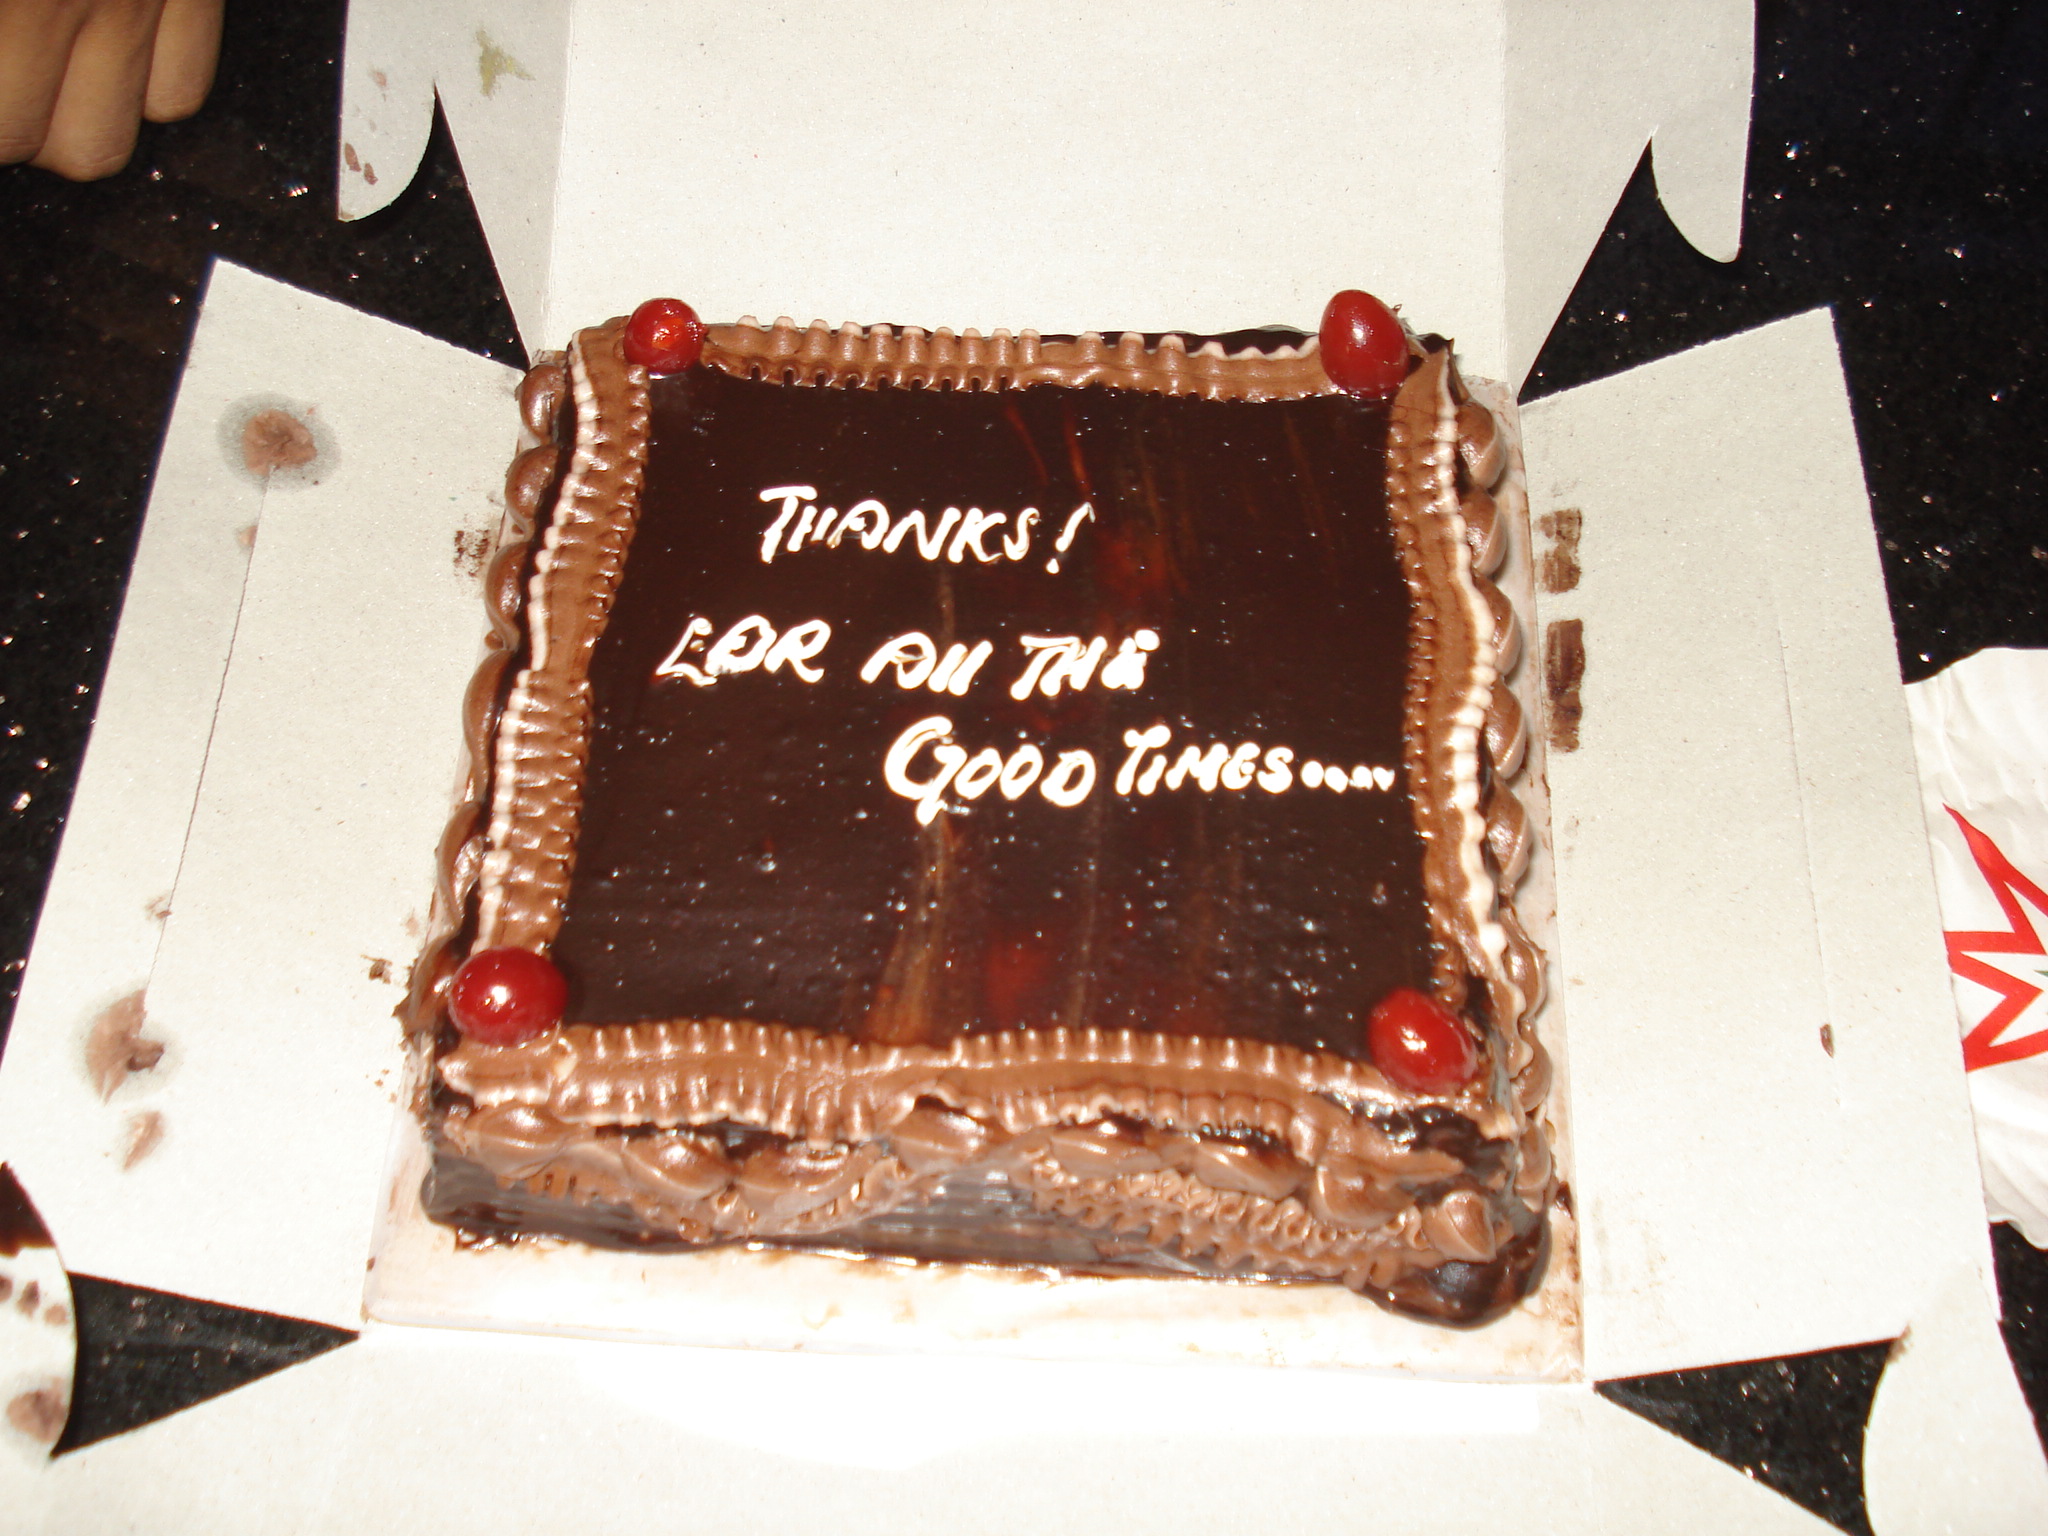 THANKS!
FOR All THE
GOOD TIMES.....